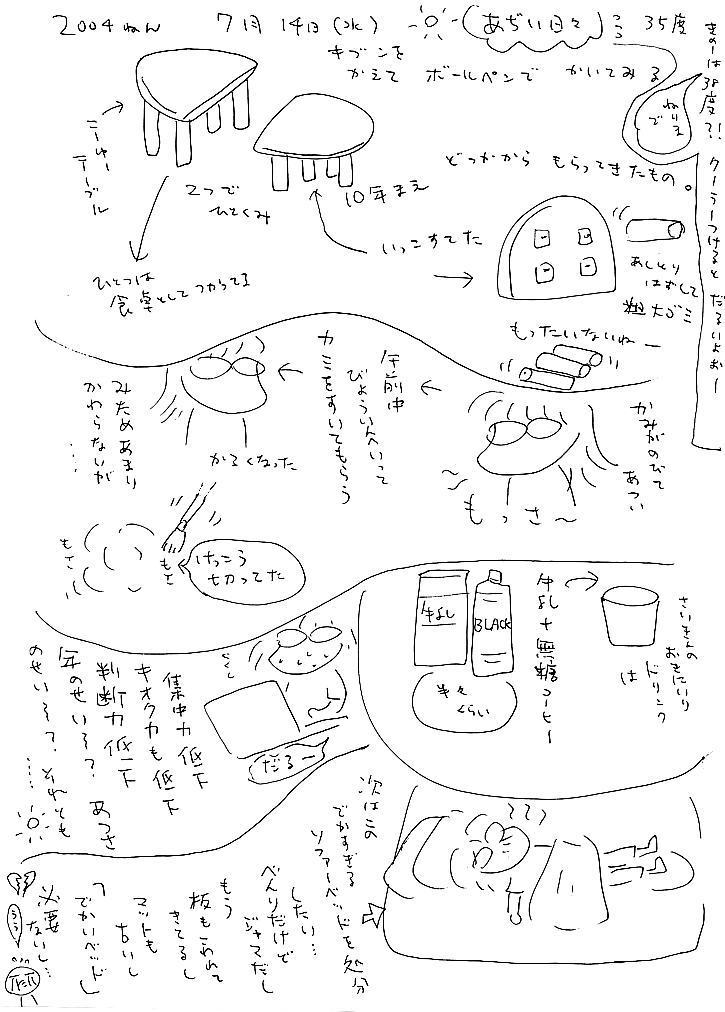 2004ねん 7月14日(水) あぢい日々 35度
きのーは38度?!
クーラーつけると だるいよおー
キブンを
かえて ボールペンで かいてみる
ねりえ
で
ニューテーブル
2つで
ひとくみ
10年まえ
どっかから もらってきたもの。
いっこすてた
あしとり
はずして
粗大ゴミ
もったいないねー
ひとつは
食卓としてつかってる
かみがのびて
あつい
もっさ〜
午前中
びよういんへいって
カミをすいてもらう
かるくなった
みためあまり
かわらないが
……
もさ
もさ
けっこう
切ってた
さいきんの
おきにいり
ドリンク
は
牛乳+無糖コーヒー
牛乳
BLACK
半々
くらい
だるー
集中力低下
キオク力も低下
判断力低下
年のせい?? あつさ
のせい?? それとも
……
次はこの
でかすぎる
ソファーベッドを処分
したい…
べんりだけで
ジャマだし
もう
板もこわれて
きてるし
マットも
ないし
「でかいベッド」
必要
ないし…